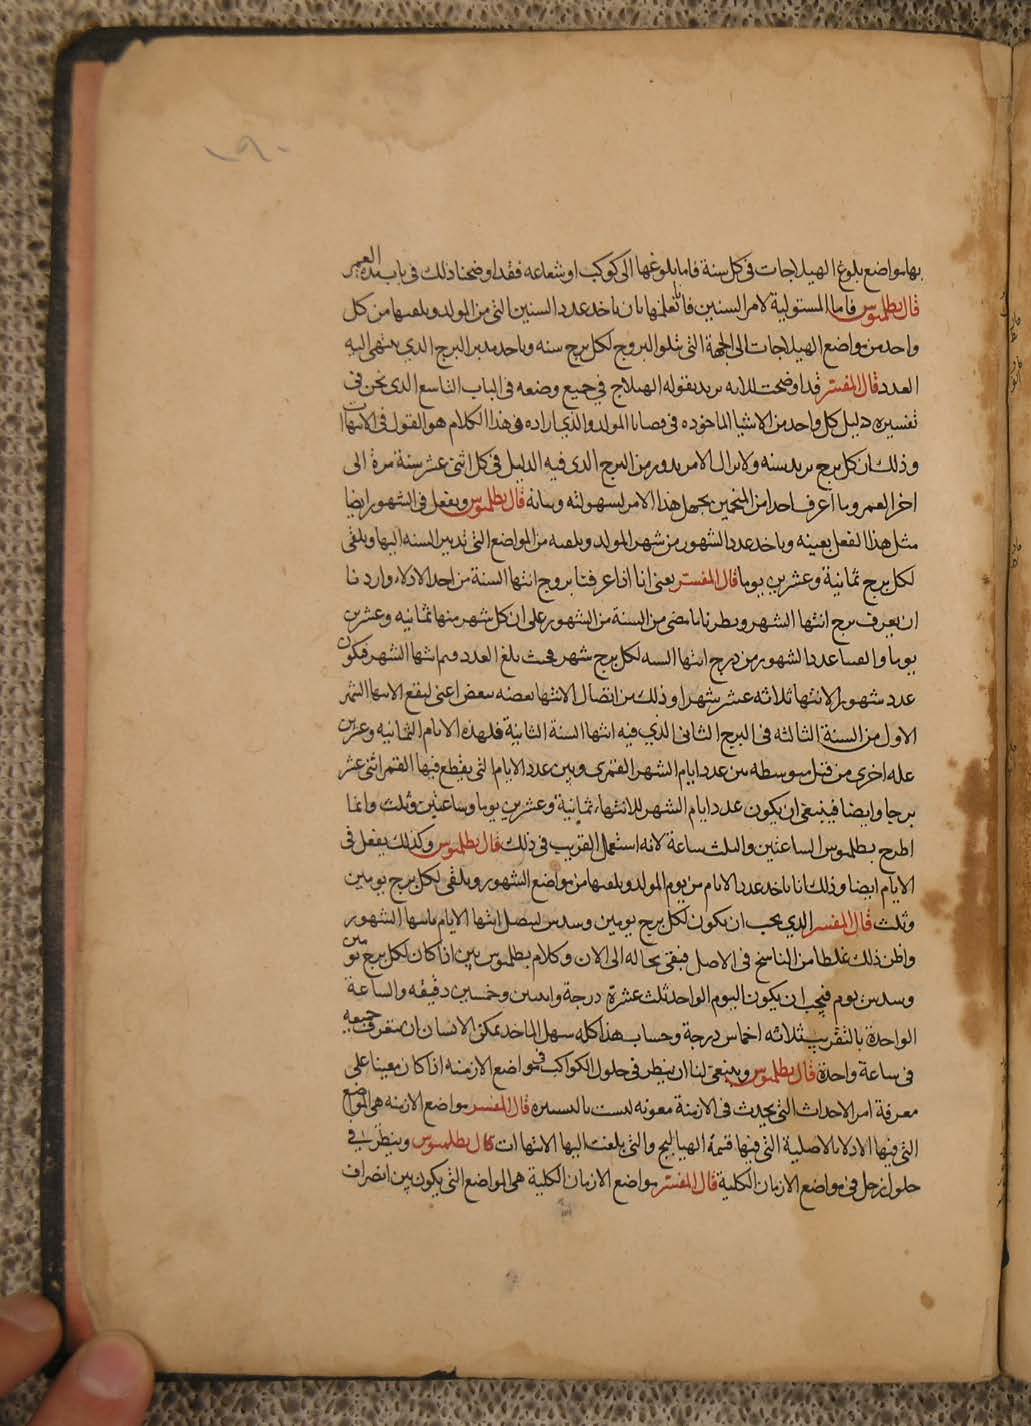 بها مواضع بلوغ الهيلاجات في كل سنة فاما بلوغها الى كوكب او شعاعه فقد اوضحنا ذلك في باب مدة العمر
قال بطلميوس فاما المستولية لامر السنين فانا نعلمها بان ناخذ عدد السنين التي من المولد ونلقيها من كل
واحد من مواضع الهيلاجات الى الجهة التي تتلو البروج لكل برج سنه وناخذ مدبر البرج الذي ينتهي اليه
العدد قال المفسر قد اوضحت لك انه يريد بقوله الهيلاج في جميع وضعه في الباب التاسع الذي نحن في
تفسيره دليل كل واحد من الاشيا الماخوذه في قضايا المولد والذي اراده في هذا الكلام هو القول في الانتهاات
وذلك ان كل برج يريد سنه ولا يزال الامر يدور من البرج الذي فيه الدليل في كل اثنتى عشر سنة مرة الى
اخر العمر وما اعرف احدا من المنجمين يجهل هذا الامر لسهولته وبيانه قال بطلميوس ويفعل في الشهور ايضا
مثل هذا الفعل بعينه وناخذ عدد الشهور من شهر المولد ونلقيه من المواضع التي تدبير السنه اليها ونلقى
لكل برج ثمانية وعشرين يوما قال المفسر يعني انا اذا عرفنا بروج انتها السنة من احد الادلاء واردنا
ان نعرف برج انتها الشهر ونظرنا ما مضى من السنة من الشهور على ان كل شهر منها ثمانيه وعشرين
يوما والقينا عدد الشهور من درج انتها السنه لكل برج شهر فحيث بلغ العدد فثم انتها الشهر فيكون
عدد شهور الانتها ثلاثه عشر شهرا وذلك من اتصال الانتها بعضه ببعض اعني ليقع الانتها الشهر
الاول من السنة الثالثه في البرج الثاني الذي فيه انتها السنة الثانية فلهذه الايام الثمانيه وعشرين
عله اخرى من قبل متوسطه بين عدد ايام الشهر القمري وبين عدد الايام التي يقطع فيها القمر اثنى عشر
برجا وايضا فينبغي ان يكون عدد ايام الشهر للانتهاء ثمانية وعشرين يوما وساعتين وثلث وانما
اطرح بطلميوس الساعتين والثلث ساعة لانه استعمل القريب في ذلك قال بطلميوس وكذلك يفعل في
الايام ايضا وذلك انا ناخذ عدد الايام من يوم المولد ونلقيها من مواضع الشهور ونلقى لكل برج يومين
وثلث قال المفسر الذي يجب ان يكون لكل برج يومين وسدس ليتصل انتها الايام بانتها الشهور
واظن ذلك غلطا من الناسخ في الاصل فبقي بحاله الى الان وكلام بطلميوس بين اذا كان لكل برج يومين
وسدس يوم فيجب ان يكون اليوم الواحد ثلث عشرة درجة واثنين وخمسين دقيقه والساعة
الواحدة بالتقريب ثلاثه اخماس درجة وحساب هذا كله سهل الماخذ يمكن الانسان ان يتعرف جميعه
في ساعة واحدة قال بطلميوس وينبغى لنا ان ينظر في حلول الكواكب في مواضع الازمنه اذا كان معينا على
معرفة امر الاحداث التي يحدث في الازمنة معونه ليست باليسيره قال المفسر مواضع الازمنه هي المواضع
التي فيها الادلاء الاصلية التي فيها قسمة الهياليج والتي بلغت اليها الانتهاات قال بطلميوس وينظر في
حلول زحل في مواضع الازمان الكلية قال المفسر مواضع الازمان الكلية هي المواضع التي يكون بين انصراف